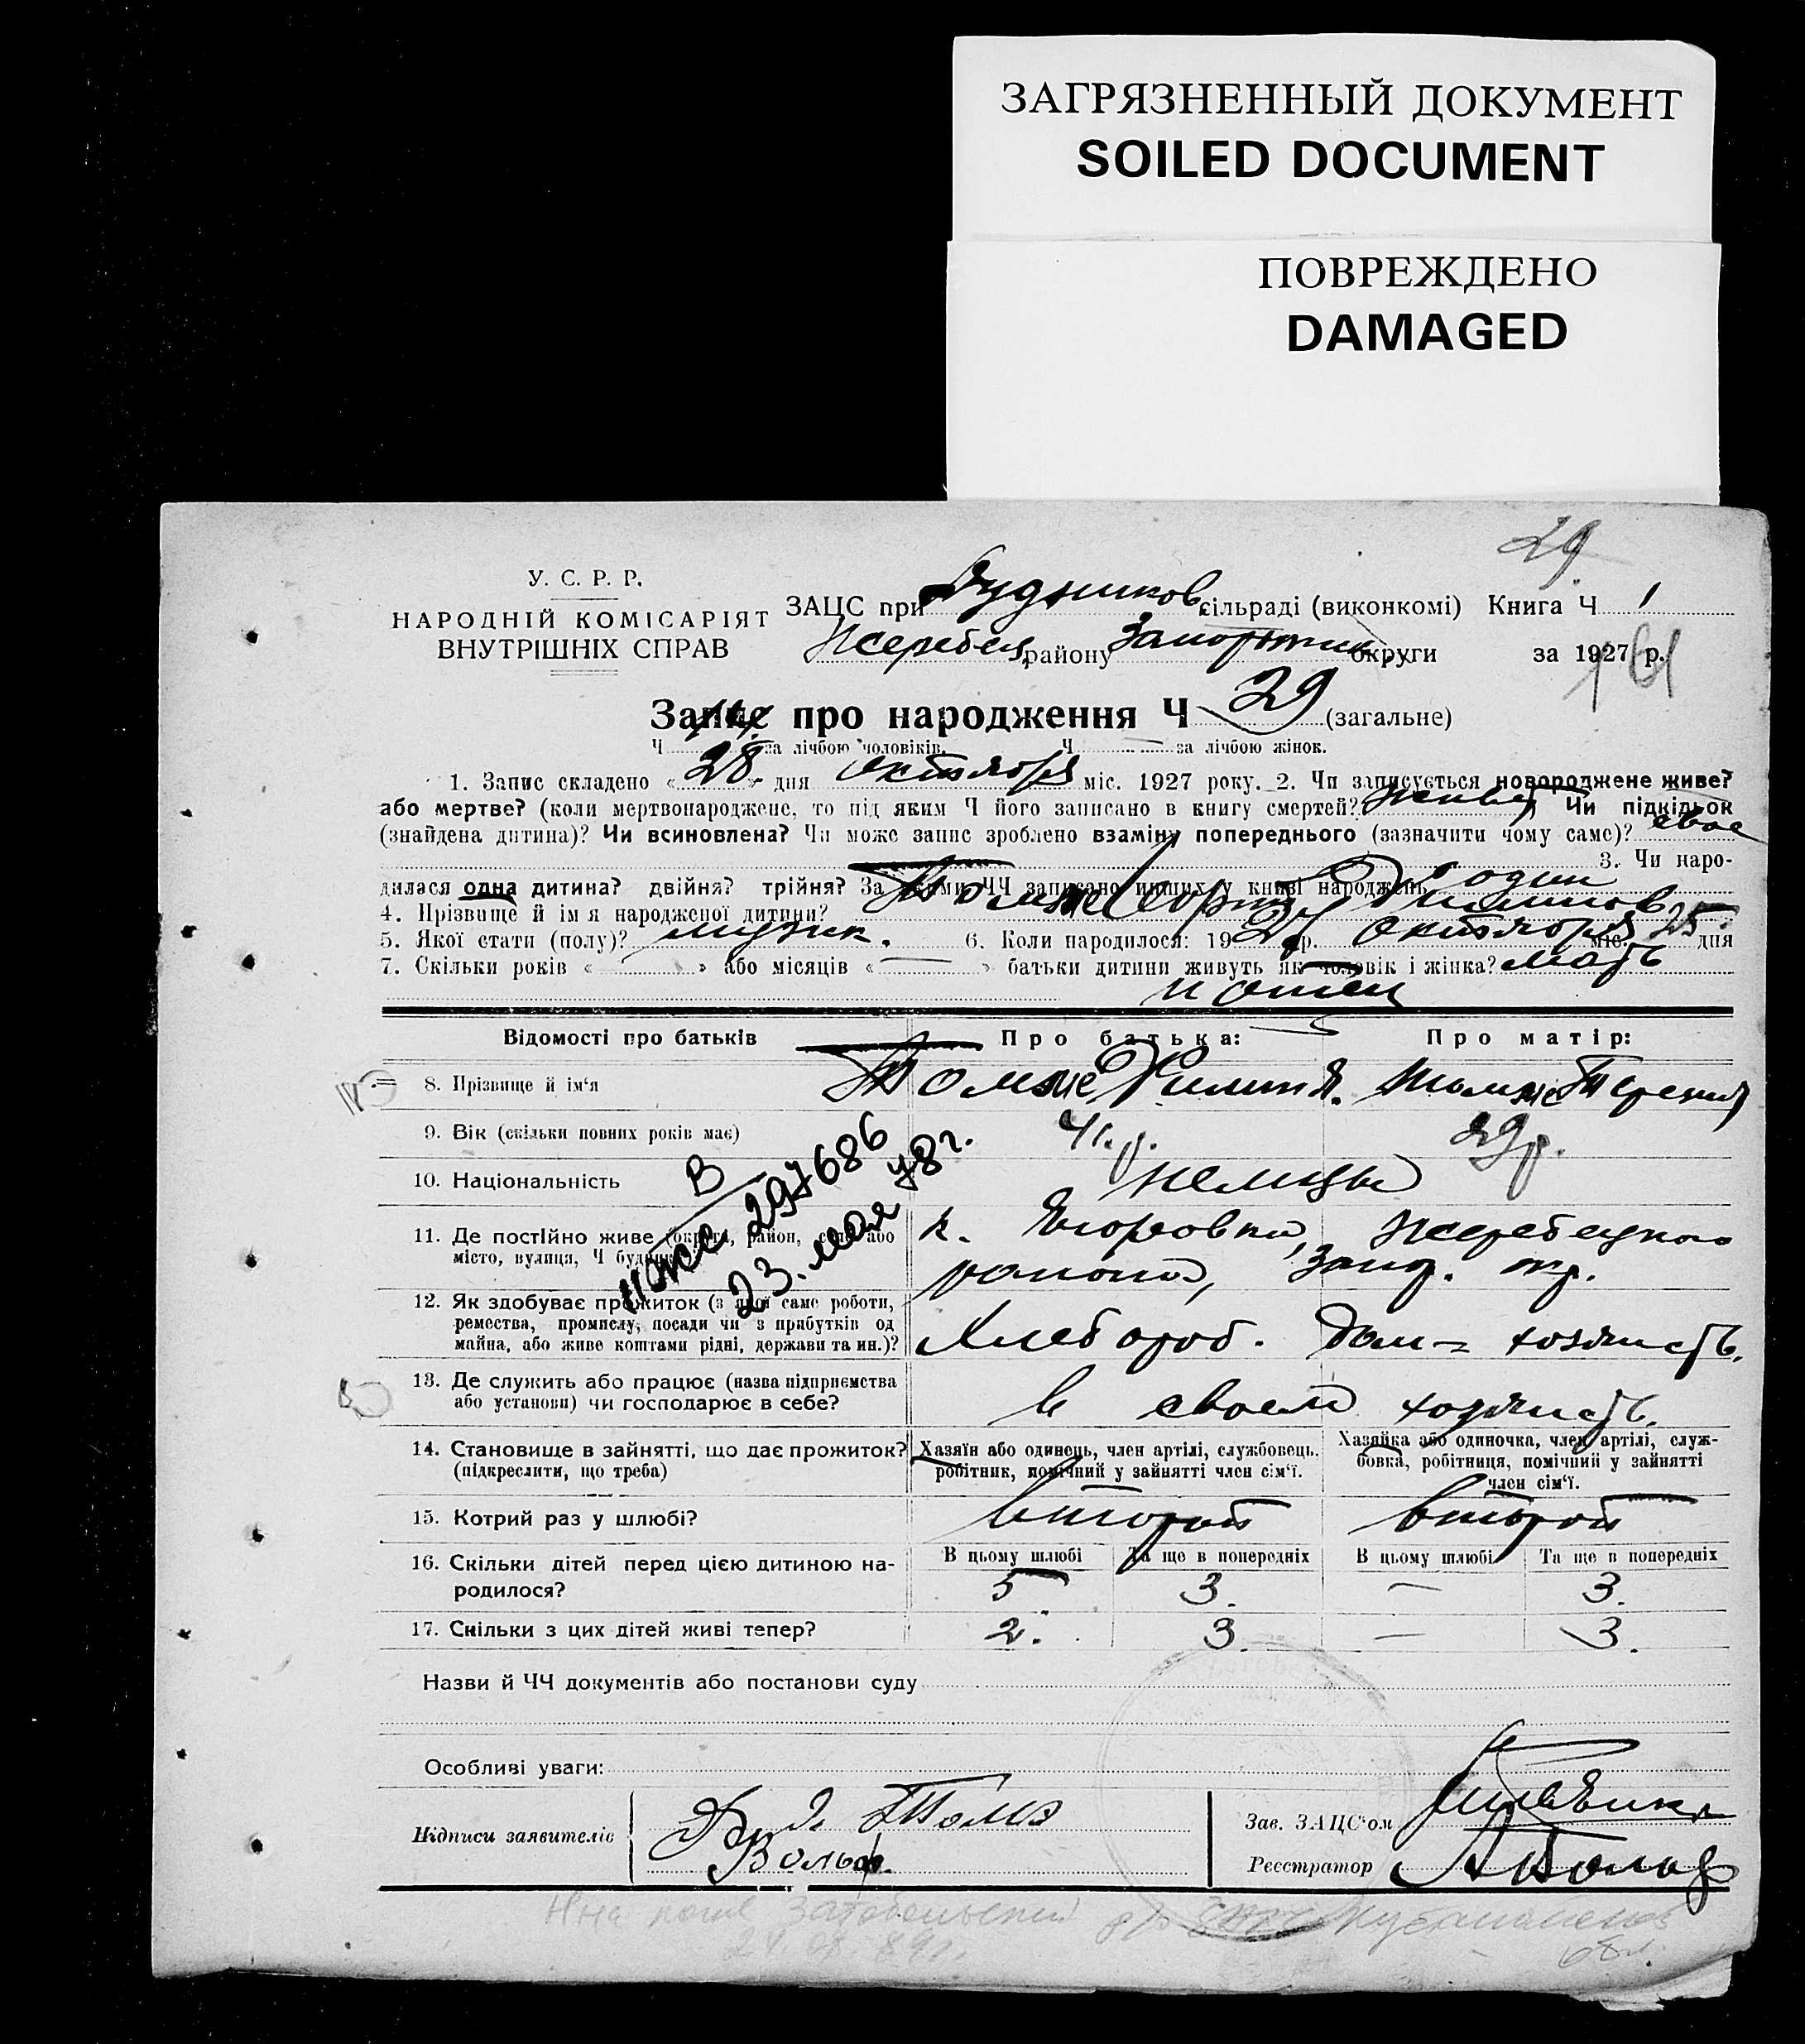 ЗАГРЯЗНЕННЫЙ ДОКУМЕНТ
SOILED DOCUMENT
ПОВРЕЖДЕНО
DAMAGED
29
У. С. Р. Р.
НАРОДНІЙ КОМІСАРІЯТ
ВНУТРІШНІХ СПРАВ
ЗАЦС при сільраді (виконкомі) Книга Ч 1
Жеребец. району округи за 1927 р.
Запис про народження Ч 29 (загальне)
Ч за лічбою чоловіків. Ч — за лічбою жінок.
1. Запис складено « 28 » дня октября міс. 1927 року. 2. Чи записується новороджене живе?
або мертве? (коли мертвонароджене, то під яким Ч його записано в книгу смертей? Чи підкідьок
(знайдена дитина)? Чи всиновлена? Чи може запис зроблено взамін попереднього (зазначити чому саме)? свое
3. Чи наро-
дилася одна дитина? двійня? трійня? За якими ЧЧ записано инших у книзі народжень один
4. Прізвище й ім'я народженої дитини?
5. Якої стати (полу)? мужик. 6. Коли народилося: 1927 р. октября міс. 25 дня
7. Скільки років « » або місяців « — » батьки дитини живуть як чоловік і жінка? мать
и отец
Відомості про батьків Про батька: Про матір:
8. Прізвище й ім'я
9. Вік (скільки повних років має) 41 р. 29 р.
10. Національність немцы
11. Де постійно живе (округа, район, село або
місто, вулиця, Ч будинку)
к. Егоровка, Жеребецкого
района, Запор. окр.
12. Як здобуває прожиток (з якої саме роботи,
ремества, промислу, посади чи з прибутків од
майна, або живе коштами рідні, держави та ин.)?
Хлебороб. Дом- хозяйств.
13. Де служить або працює (назва підприємства
або установи) чи господарює в себе?
в своем хозяйств.
14. Становище в зайнятті, що дає прожиток?
(підкреслити, що треба)
Хазяїн або одинець, член артілі, службовець.
робітник, помічний у зайнятті член сім'ї.
Хазяйка або одиночка, член артілі, служ-
бовка, робітниця, помічний у зайнятті
член сім'ї.
15. Котрий раз у шлюбі? второй второй
16. Скільки дітей перед цією дитиною на-
родилося?
В цьому шлюбі Та ще в попередніх В цьому шлюбі Та ще в попередніх
5 3. — 3.
17. Скільки з цих дітей живі тепер? 2. 3. — 3.
297686
23. мая 78 г.
Назви й ЧЧ документів або постанови суду
Особливі уваги:
Підписи заявителів
Зав. ЗАЦС'ом
Вольф.
Реєстратор А Вольф